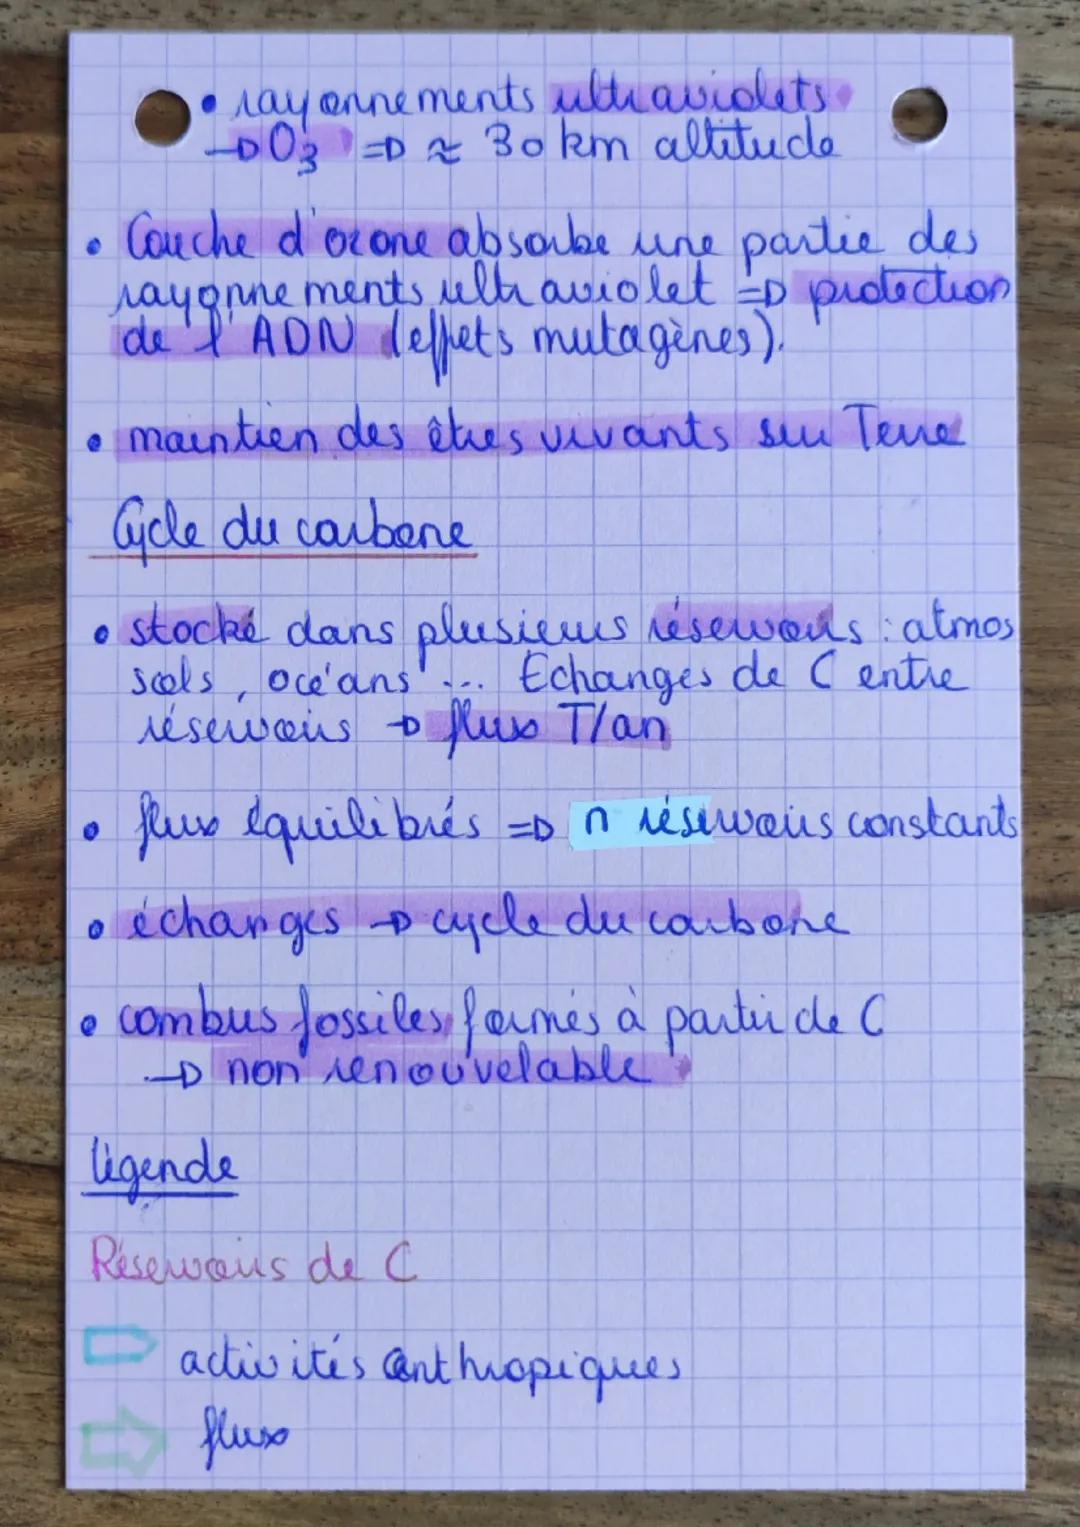 • rayonnements ultraviolets
→ O3 => ≈ 30 km altitude
• Couche d'ozone absorbe une partie des
rayonnements ultraviolet => protection
de l'ADN (effets mutagènes).
• maintien des êtres vivants sur Terre
Cycle du carbone
• stocké dans plusieurs réservoirs : atmos
sols, océans ... Echanges de C entre
réservoirs → flux T/an
• flux équilibrés => n réservoirs constants
• échanges → cycle du carbone
• combus fossiles formés à partir de C
→ non renouvelable
légende
Réservoirs de C
activités anthropiques
flux